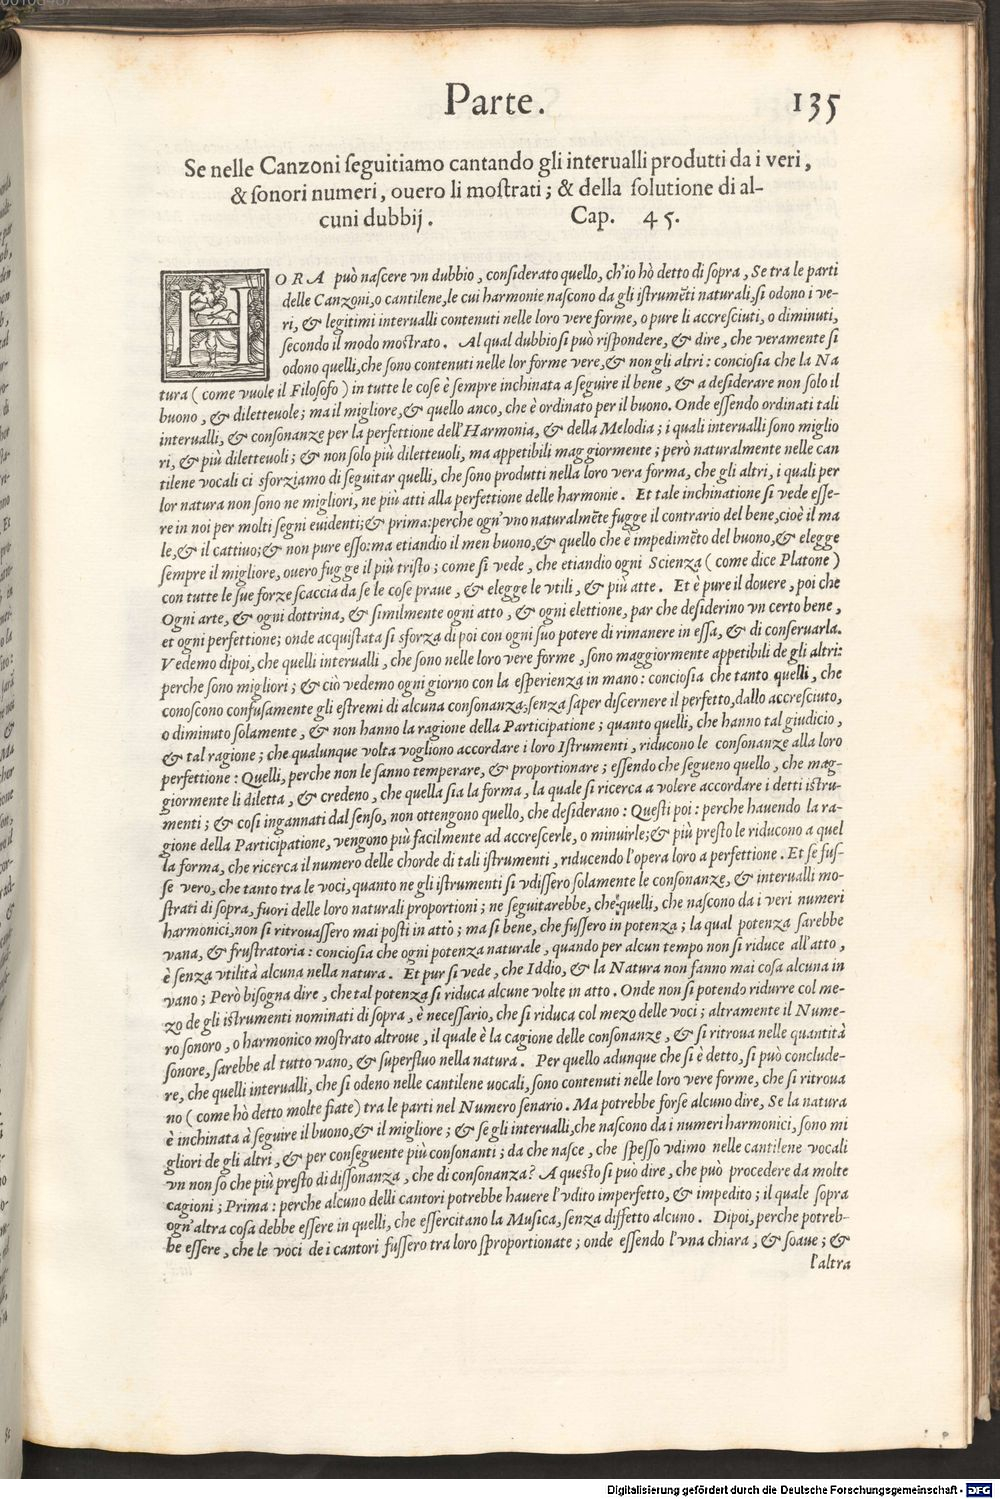 Parte. 135
Se nelle Canzoni ſeguitiamo cantando gli interualli produtti da i veri,
& ſonori numeri, ouero li moſtrati; & della ſolutione di al-
cuni dubbij. Cap. 45.
HORA può naſcere vn dubbio, conſiderato quello, ch'io hò detto di ſopra, Se tra le parti
delle Canzoni, o cantilene, le cui harmonie naſcono da gli iſtrumẽti naturali, ſi odono i ve-
ri, & legitimi interualli contenuti nelle loro vere forme, o pure li accreſciuti, o diminuti,
ſecondo il modo moſtrato. Al qual dubbio ſi può riſpondere, & dire, che veramente ſi
odono quelli, che ſono contenuti nelle lor forme vere, & non gli altri: conciosia che la Na
tura (come vuole il Filoſofo) in tutte le coſe è ſempre inchinata a ſeguire il bene, & a deſiderare non ſolo il
buono, & diletteuole; ma il migliore, & quello anco, che è ordinato per il buono. Onde eſſendo ordinati tali
interualli, & conſonanze per la perfettione dell'Harmonia, & della Melodia; i quali interualli ſono miglio
ri, & più diletteuoli; & non ſolo più diletteuoli, ma appetibili maggiormente; però naturalmente nelle can
tilene vocali ci sforziamo di ſeguitar quelli, che ſono produtti nella loro vera forma, che gli altri, i quali per
lor natura non ſono ne migliori, ne più atti alla perfettione delle harmonie. Et tale inchinatione ſi vede eſſe-
re in noi per molti ſegni euidenti; & prima: perche ogn'vno naturalmẽte fugge il contrario del bene, cioè il ma
le, & il cattiuo; & non pure eſſo: ma etiandio il men buono, & quello che è impedimẽto del buono, & elegge
ſempre il migliore, ouero fugge il più triſto; come ſi vede, che etiandio ogni Scienza (come dice Platone)
con tutte le ſue forze ſcaccia da ſe le coſe praue, & elegge le vtili, & più atte. Et è pure il douere, poi che
Ogni arte, & ogni dottrina, & ſimilmente ogni atto, & ogni elettione, par che deſiderino vn certo bene,
et ogni perfettione; onde acquiſtata ſi sforza di poi con ogni ſuo potere di rimanere in eſſa, & di conſeruarla.
Vedemo dipoi, che quelli interualli, che ſono nelle loro vere forme, ſono maggiormente appetibili de gli altri:
perche ſono migliori; & ciò vedemo ogni giorno con la eſperienza in mano: conciosia che tanto quelli, che
conoſcono confuſamente gli eſtremi di alcuna conſonanza, ſenza ſaper diſcernere il perfetto, dallo accreſciuto,
o diminuto ſolamente, & non hanno la ragione della Participatione; quanto quelli, che hanno tal giudicio,
& tal ragione; che qualunque volta vogliono accordare i loro Iſtrumenti, riducono le conſonanze alla loro
perfettione: Quelli, perche non le ſanno temperare, & proportionare; eſſendo che ſegueno quello, che mag-
giormente li diletta, & credeno, che quella ſia la forma, la quale ſi ricerca a volere accordare i detti iſtru-
menti; & coſi ingannati dal ſenſo, non ottengono quello, che deſiderano: Queſti poi: perche hauendo la ra-
gione della Participatione, vengono più facilmente ad accreſcerle, o minuirle; & più preſto le riducono a quel
la forma, che ricerca il numero delle chorde di tali iſtrumenti, riducendo l'opera loro a perfettione. Et ſe fuſ-
ſe vero, che tanto tra le voci, quanto ne gli iſtrumenti ſi vdiſſero ſolamente le conſonanze, & interualli mo-
ſtrati di ſopra, fuori delle loro naturali proportioni; ne ſeguitarebbe, che quelli, che naſcono da i veri numeri
harmonici, non ſi ritrouaſſero mai poſti in atto; ma ſi bene, che fuſſero in potenza; la qual potenza ſarebbe
vana, & fruſtratoria: conciosia che ogni potenza naturale, quando per alcun tempo non ſi riduce all'atto,
è ſenza vtilità alcuna nella natura. Et pur ſi vede, che Iddio, & la Natura non fanno mai coſa alcuna in
vano; Però biſogna dire, che tal potenza ſi riduca alcune volte in atto. Onde non ſi potendo ridurre col me-
zo de gli iſtrumenti nominati di ſopra, è neceſſario, che ſi riduca col mezo delle voci; altramente il Nume-
ro ſonoro, o harmonico moſtrato altroue, il quale è la cagione delle conſonanze, & ſi ritroua nelle quantità
ſonore, ſarebbe al tutto vano, & ſuperfluo nella natura. Per quello adunque che ſi è detto, ſi può conclude-
re, che quelli interualli, che ſi odeno nelle cantilene vocali, ſono contenuti nelle loro vere forme, che ſi ritroua
no (come hò detto molte fiate) tra le parti nel Numero ſenario. Ma potrebbe forſe alcuno dire, Se la natura
è inchinata à ſeguire il buono, & il migliore; & ſe gli interualli, che naſcono da i numeri harmonici, ſono mi
gliori de gli altri, & per conſeguente più conſonanti; da che naſce, che ſpeſſo vdimo nelle cantilene vocali
vn non ſo che più preſto di diſſonanza, che di conſonanza? A queſto ſi può dire, che può procedere da molte
cagioni; Prima: perche alcuno delli cantori potrebbe hauere l'vdito imperfetto, & impedito; il quale ſopra
ogn'altra coſa debbe eſſere in quelli, che eſſercitano la Muſica, ſenza diffetto alcuno. Dipoi, perche potreb-
be eſſere, che le voci de i cantori fuſſero tra loro ſproportionate; onde eſſendo l'vna chiara, & ſoaue; &
l'altra
Digitalisierung gefördert durch die Deutsche Forschungsgemeinschaft - DFG